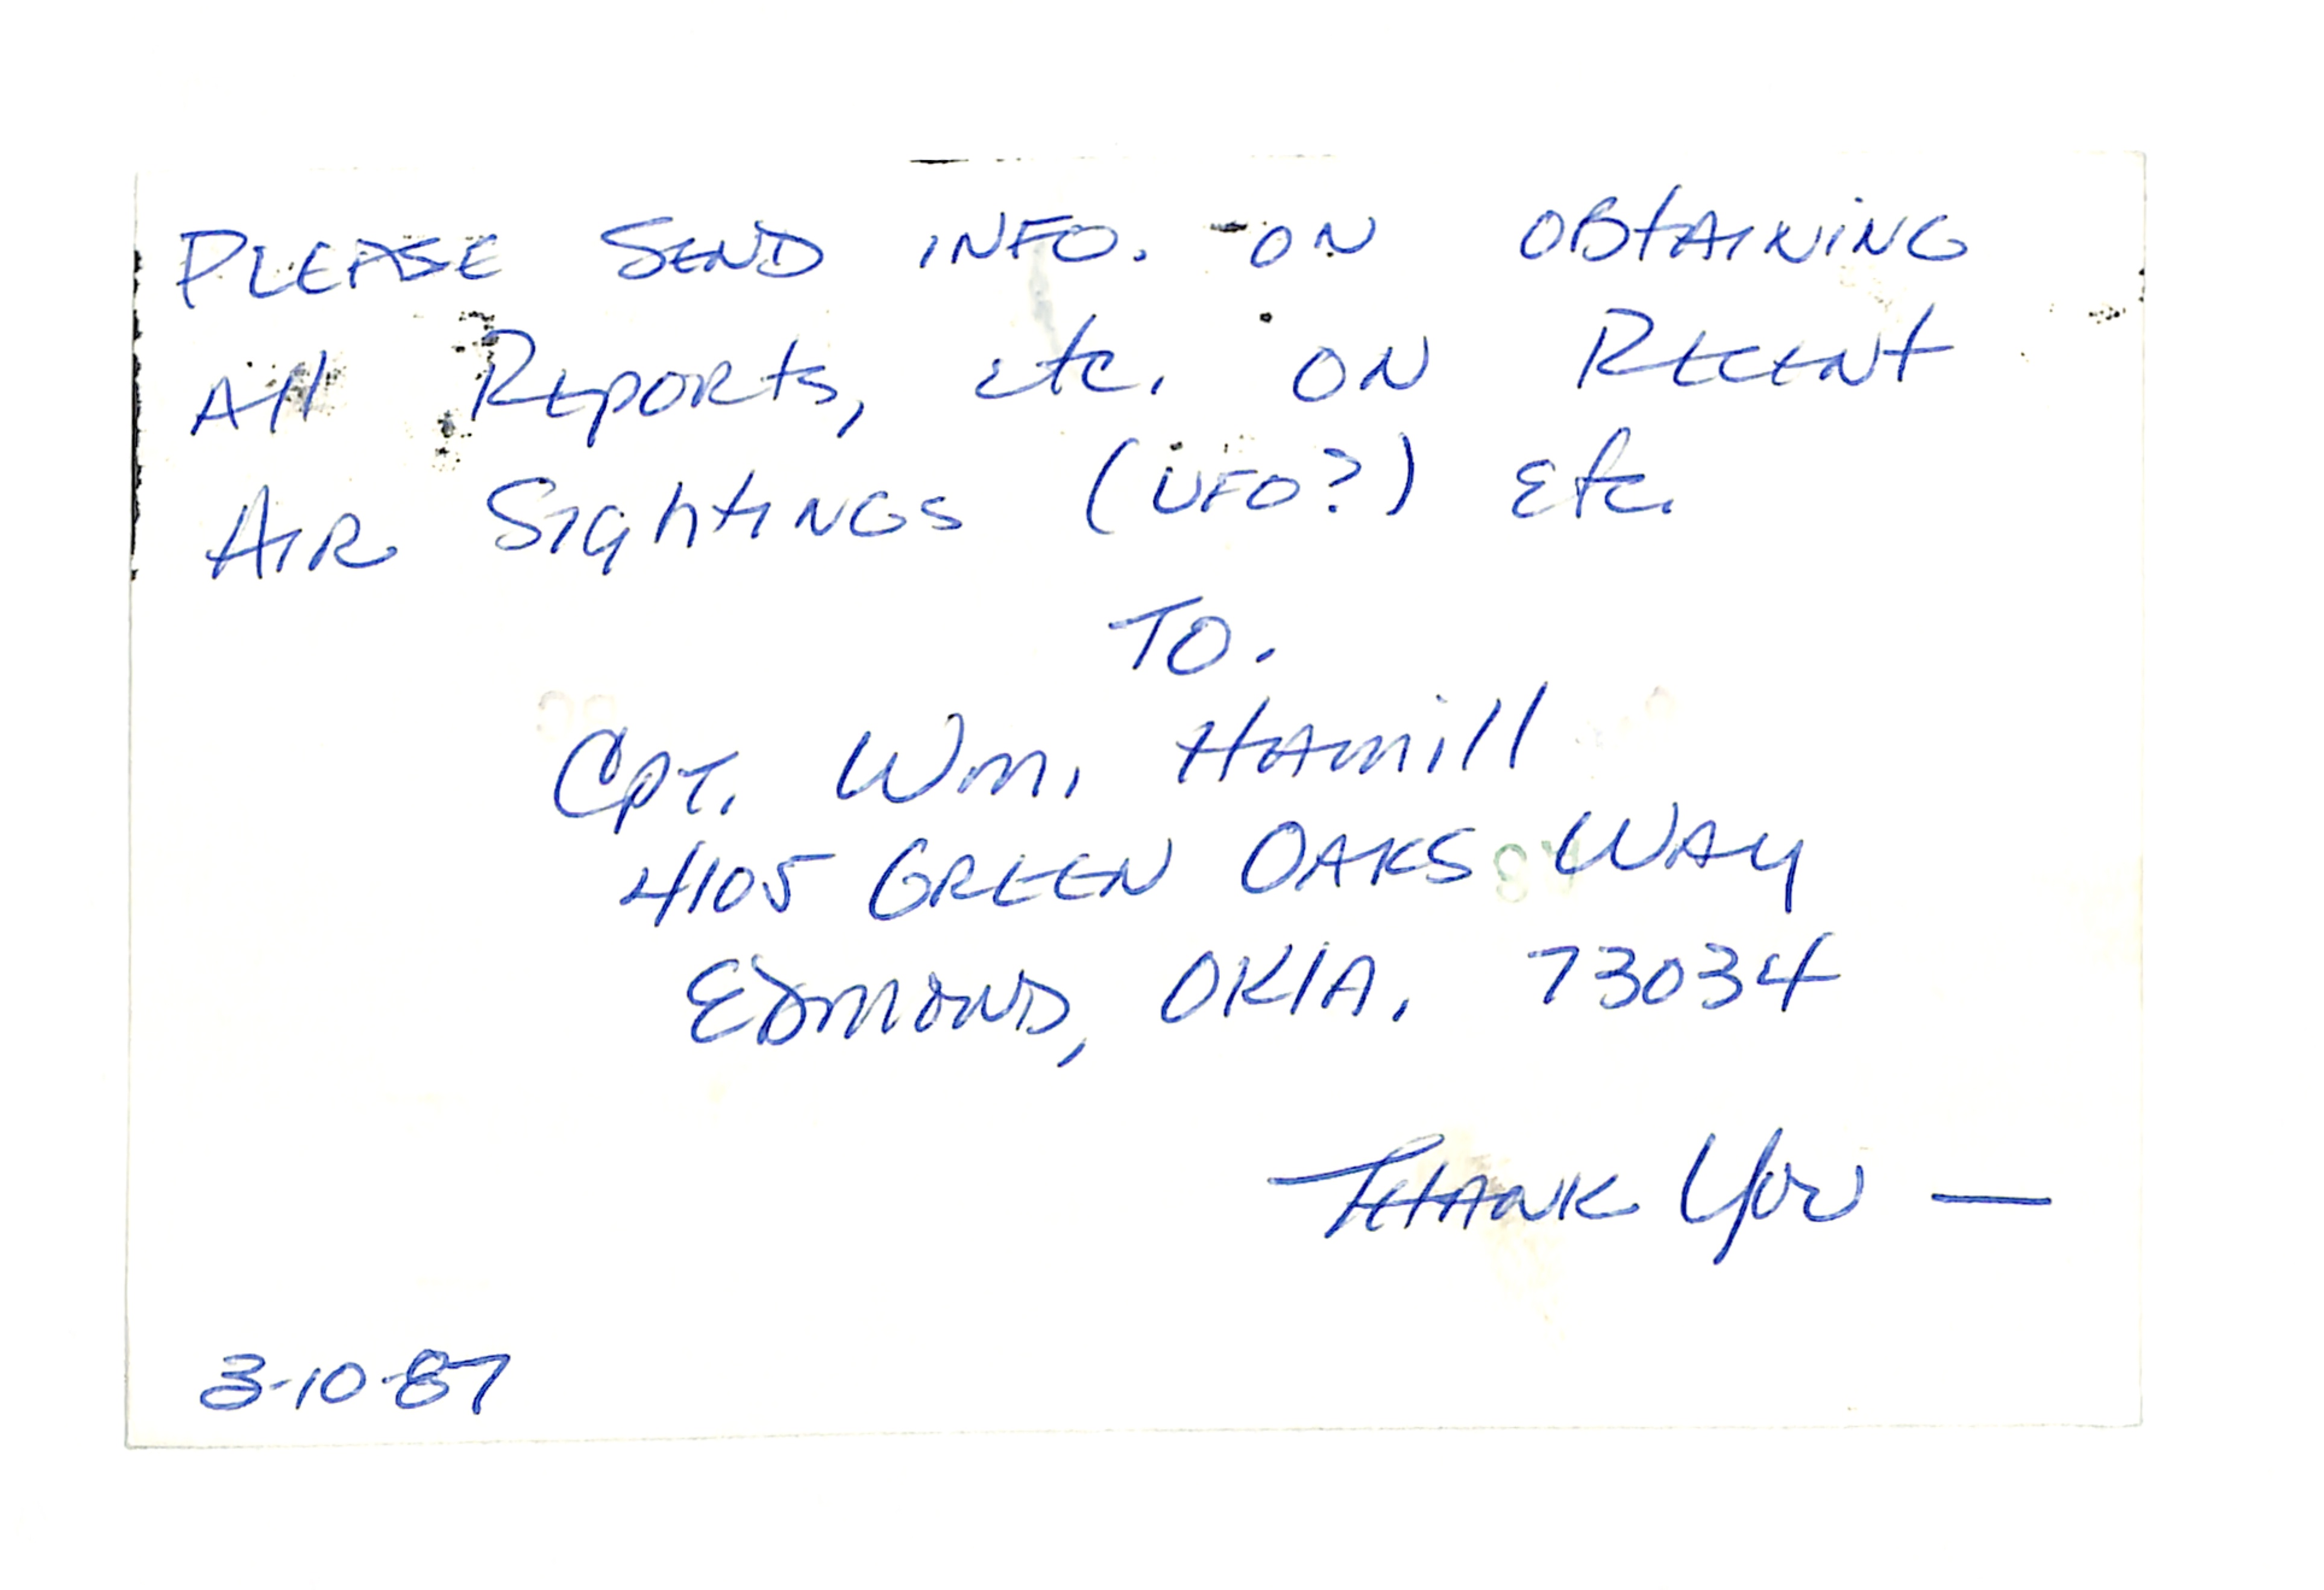 PLEASE SEND INFO. ON OBTAINING
All REPORts, etc. ON RECENt
AIR SIGHtINGS (UFO?) Etc.
TO.
Cpt. Wm. HAmill
4105 GREEN OAKS WAY
EDMOND, OKlA. 73034
THANK YOU —
3-10-87